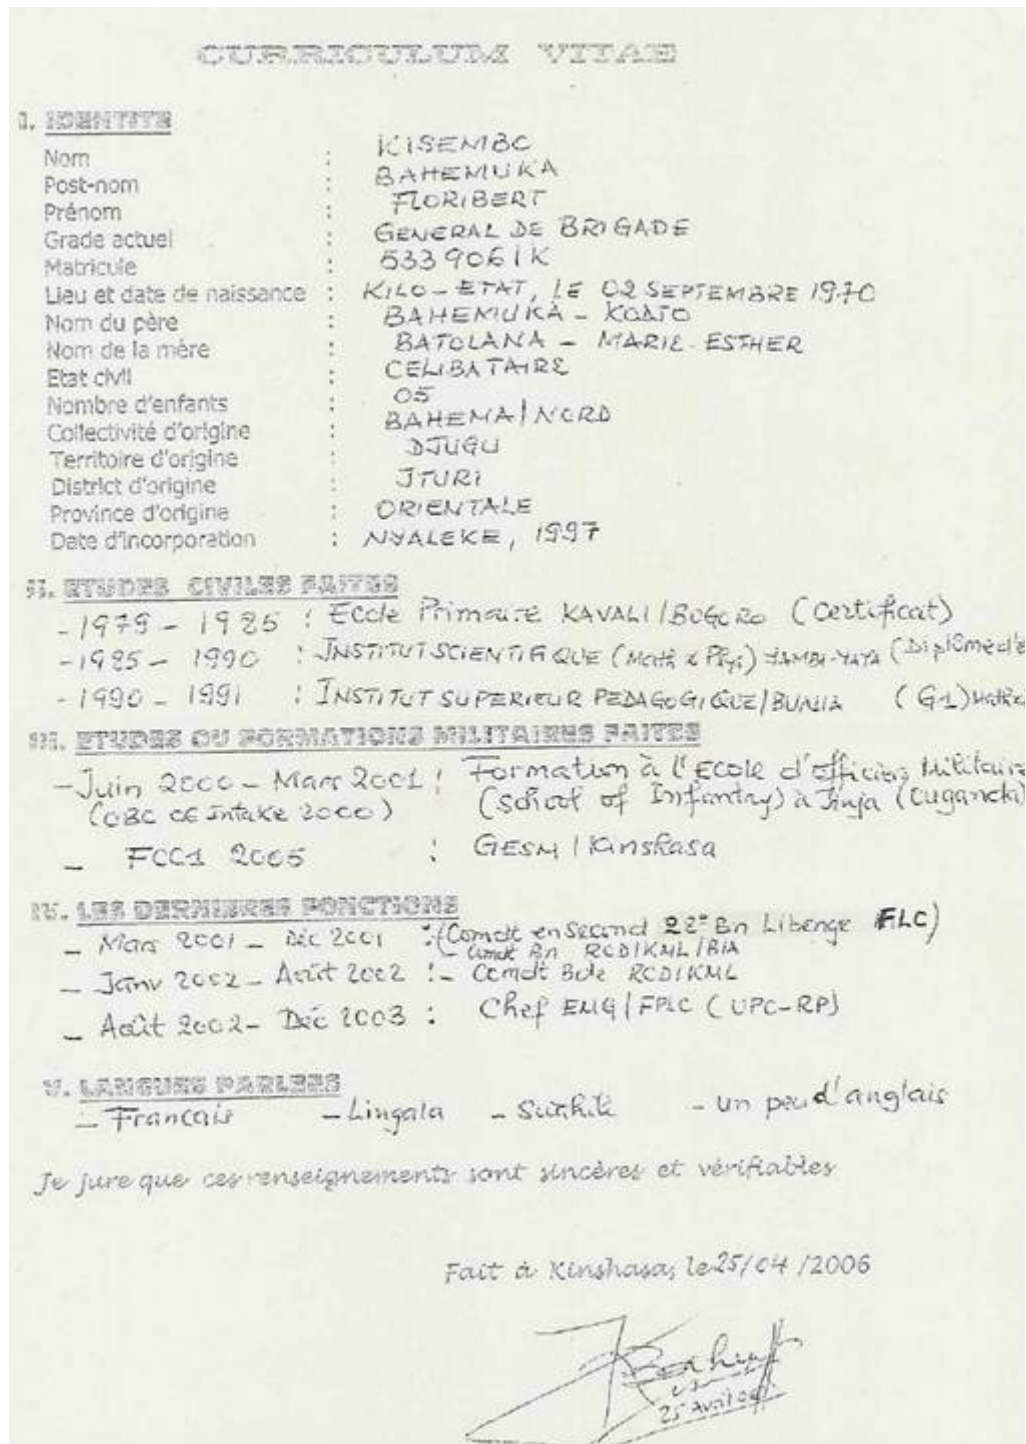 CURRICULUM VITAE
I. IDENTITE
Nom : KISEMBO
Post-nom : BAHEMUKA
Prénom : FLORIBERT
Grade actuel : GENERAL DE BRIGADE
Matricule : 5339061K
Lieu et date de naissance : KILO-ETAT, LE 02 SEPTEMBRE 1970
Nom du père : BAHEMUKA -
Nom de la mère : BATOLANA - MARIE-ESTHER
Etat civil : CELIBATAIRE
Nombre d'enfants : 05
Collectivité d'origine : BAHEMA/NORD
Territoire d'origine : DJUGU
District d'origine : ITURI
Province d'origine : ORIENTALE
Date d'incorporation : NYALEKE, 1997
II. ETUDES CIVILES FAITES
- 1979 - 1985 : Ecole Primaire KAVALI/BOGORO (Certificat)
- 1985 - 1990 : INSTITUT SCIENTIFIQUE (Math & Phyi) (Diplôme d'E
- 1990 - 1991 : INSTITUT SUPERIEUR PEDAGOGIQUE/BUNIA (G1)
III. ETUDES OU FORMATIONS MILITAIRES FAITES
- Juin 2000 - Mars 2001 : Formation à l'Ecole d'officiers Militaire
(OBC 05 Intake 2000) (School of Infantry) à Jinja (Ouganda)
- FCC1 2005 : GESM/Kinshasa
IV. LES DERNIERES FONCTIONS
- Mars 2001 - Déc 2001 : (Comdt en Second 22e Bn Libenge FLC)
- Comdt Bn RCD/KML/BIA
- Janv 2002 - Août 2002 : - Comdt Bde RCD/KML
- Août 2002 - Déc 2003 : Chef EMG/FPLC (UPC-RP)
V. LANGUES PARLEES
- Français - Lingala - Swahili - un peu d'anglais
Je jure que ces renseignements sont sincères et vérifiables
Fait à Kinshasa, le 25/04/2006
25 Avril 06